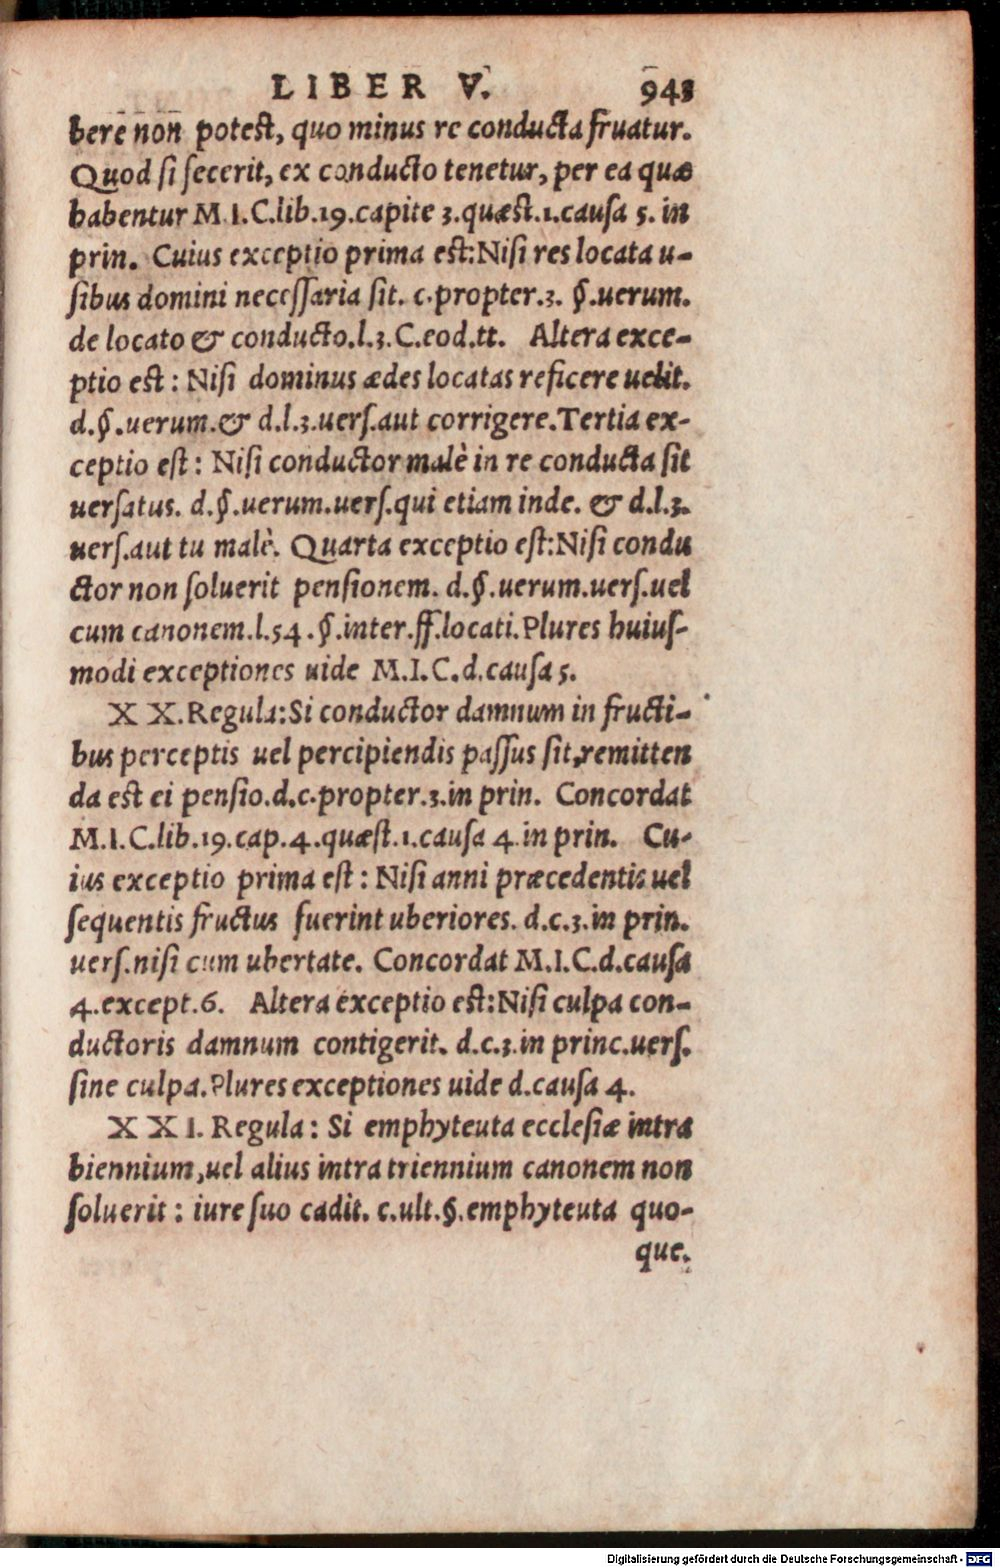 LIBER V. 943
bere non potest, quo minus re conducta fruatur.
Quod si fecerit, ex conducto tenetur, per ea quæ
habentur M.I.C.lib.19.capite 3.quæst.1.causa 5. in
prin. Cuius exceptio prima est:Nisi res locata u-
sibus domini necessaria sit. c.propter.3. §.uerum.
de locato & conducto.l.3.C.eod.tt. Altera exce-
ptio est: Nisi dominus ædes locatas reficere uelit.
d.§.uerum.& d.l.3.uers.aut corrigere.Tertia ex-
ceptio est: Nisi conductor malè in re conducta sit
uersatus. d.§.uerum.uers.qui etiam inde. & d.l.3.
uers.aut tu malè. Quarta exceptio est:Nisi condu
ctor non soluerit pensionem. d.§.uerum.uers.uel
cum canonem.l.54.§.inter.ff.locati.Plures huius-
modi exceptiones uide M.I.C.d.causa 5.
XX.Regula:Si conductor damnum in fructi-
bus perceptis uel percipiendis passus sit,remitten
da est ei pensio.d.c.propter.3.in prin. Concordat
M.I.C.lib.19.cap.4.quæst.1.causa 4.in prin. Cu-
ius exceptio prima est: Nisi anni præcedentis uel
sequentis fructus fuerint uberiores. d.c.3.in prin.
uers.nisi cum ubertate. Concordat M.I.C.d.causa
4.except.6. Altera exceptio est:Nisi culpa con-
ductoris damnum contigerit. d.c.3.in princ.uers.
sine culpa.Plures exceptiones uide d.causa 4.
XXI. Regula: Si emphyteuta ecclesiæ intra
biennium,uel alius intra triennium canonem non
soluerit: iure suo cadit. c.ult.§.emphyteuta quo-
que.
Digitalisierung gefördert durch die Deutsche Forschungsgemeinschaft - DFG